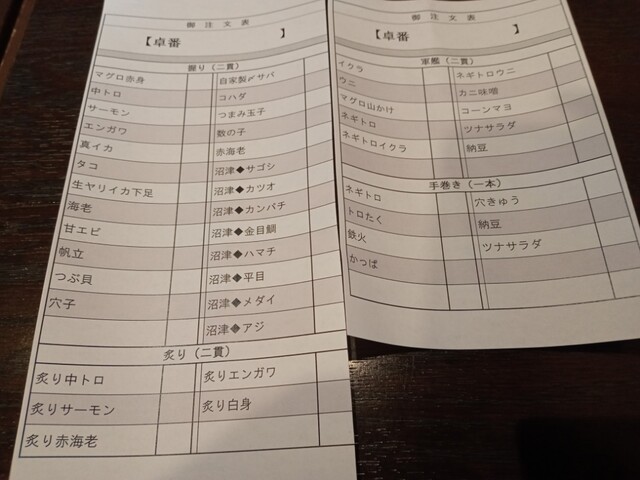 御注文表
【卓番 】
握り（二貫）
マグロ赤身
中トロ
サーモン
エンガワ
真イカ
タコ
生ヤリイカ下足
海老
甘エビ
帆立
つぶ貝
穴子
自家製〆サバ
コハダ
つまみ玉子
数の子
赤海老
沼津◆サゴシ
沼津◆カツオ
沼津◆カンパチ
沼津◆金目鯛
沼津◆ハマチ
沼津◆平目
沼津◆メダイ
沼津◆アジ
炙り（二貫）
炙り中トロ
炙りサーモン
炙り赤海老
炙りエンガワ
炙り白身
御注文表
【卓番 】
軍艦（二貫）
イクラ
ウニ
マグロ山かけ
ネギトロ
ネギトロイクラ
ネギトロウニ
カニ味噌
コーンマヨ
ツナサラダ
納豆
手巻き（一本）
ネギトロ
トロたく
鉄火
かっぱ
穴きゅう
納豆
ツナサラダ